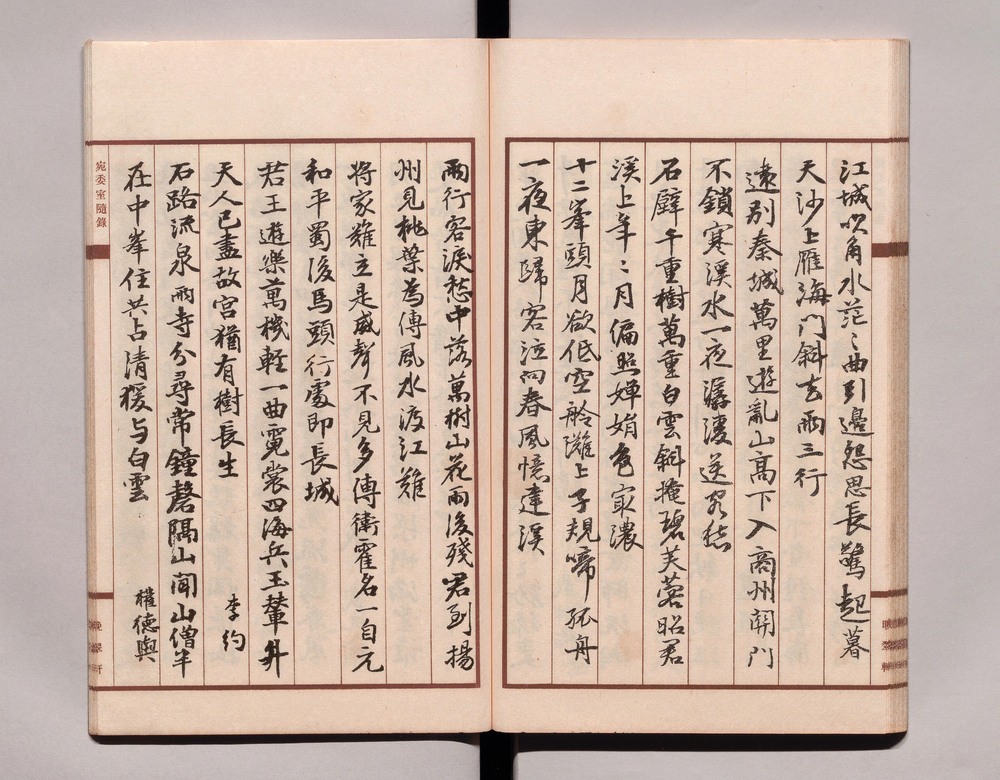 江城吹角水茫〻曲引邊怨思長驚起暮
天沙上雁海門斜去兩三行
遠別秦城萬里遊亂山高下入商州關門
不鎖寒溪水一夜潺湲送客愁
石壁千重樹萬重白雲斜掩碧芙蓉昭君
溪上年〻月偏照嬋娟色最濃
十二峯頭月欲低空舲灘上子規啼孤舟
一夜東歸客泣向春風憶建溪
兩行客淚愁中落萬樹山花雨後殘君到揚
州見桃葉為傳風水渡江難
將家難立是威聲不見多傳衛霍名一自元
和平蜀後馬頭行處即長城
君王遊樂萬機輕一曲霓裳四海兵玉輦升
天人已盡故宮猶有樹長生
李約
石路流泉兩寺分尋常鐘磬隔山聞山僧半
在中峯住共占清猨与白雲
權德輿
宛委室隨錄